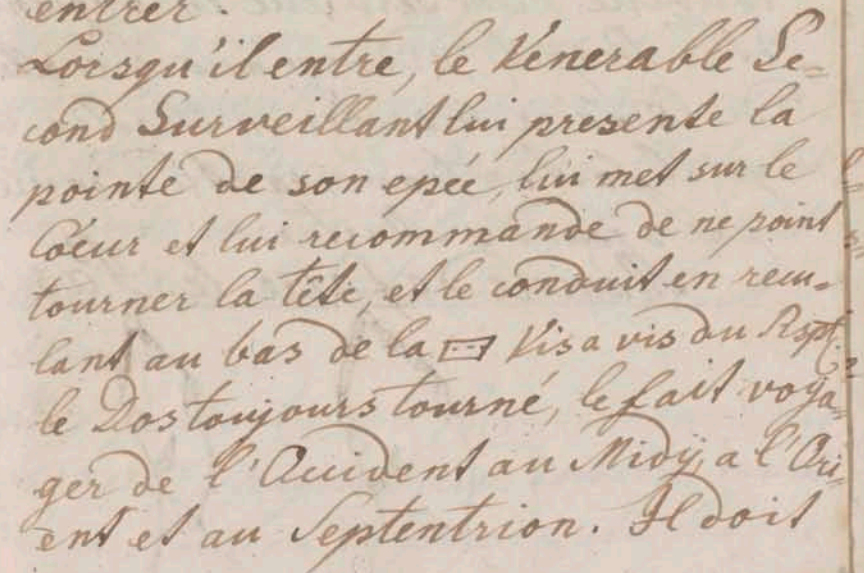 entrer.
Lorsqu'il entre, le Venerable Se-
cond Surveillant lui presente la
pointe de son epée, lui met sur le
Coeur et lui recommande de ne point
tourner la tête, et le conduit en recu-
lant au bas de la Vis a vis du Rspt.
le Dos toujours tourné, le fait voya-
ger de l'Occident au Midÿ, a l'Ori-
ent et au Septentrion. Il doit